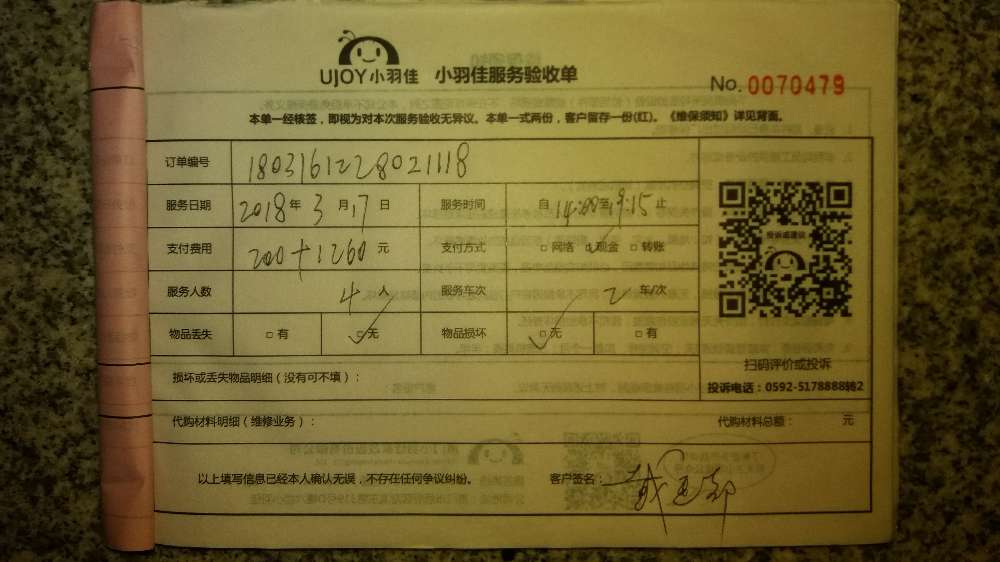 UJOY小羽佳 小羽佳服务验收单
No. 0070479
本单一经核签，即视为对本次服务验收无异议。本单一式两份，客户留存一份(红)。《维保须知》详见背面。
订单编号 1803161228021118
服务日期 2018年3月17日 服务时间 自14:00至19:15止
支付费用 200+1260元 支付方式 □网络 ☑现金 □转账
服务人数 4人 服务车次 2车/次
物品丢失 □有 ☑无 物品损坏 ☑无 □有
投诉或建议
扫码评价或投诉
投诉电话：0592-5178888转2
损坏或丢失物品明细（没有可不填）：
代购材料明细（维修业务）： 代购材料总额： 元
以上填写信息已经本人确认无误，不存在任何争议纠纷。 客户签名：